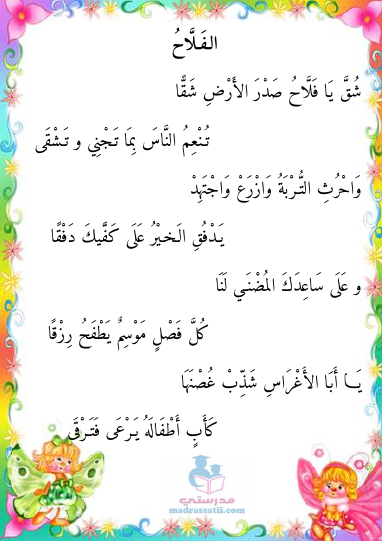 الفَلَّاحُ
شُقَّ يَا فَلَّاحُ صَدْرَ الأَرْضِ شَقًّا
تُنْعِمُ النَّاسَ بِمَا تَجْنِي و تَشْقَى
وَاحْرُثِ التُّرْبَةُ وَازْرَعْ وَاجْتَهِدْ
يَدْفُقِ الخَيْرُ عَلَى كَفَّيكَ دَفْقًا
و عَلَى سَاعِدَكَ المُضْنَي لَنَا
كُلَّ فَصْلٍ مَوْسِمٌ يَطْفَحُ رِزْقًا
يَا أَبَا الأَغْرَاسِ شَذِّبْ غُصْنَهَا
كَأَبٍ أَطْفَالَهُ يَرْعَى فَتَرْقَى
مدرستي
madrassatii.com